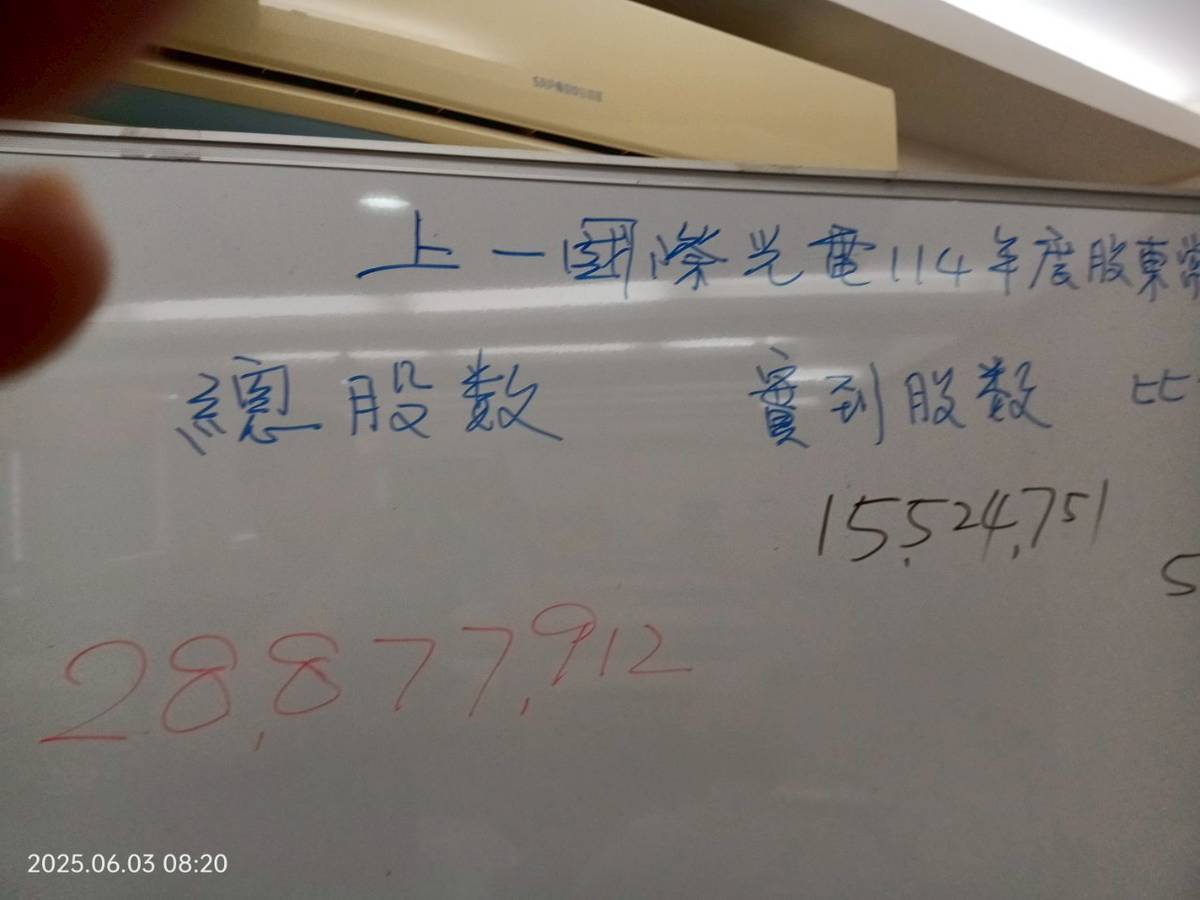 上一國際光電114年度股東常
總股数 實到股数 比
15,524,751
5
28,877,912
2025.06.03 08:20